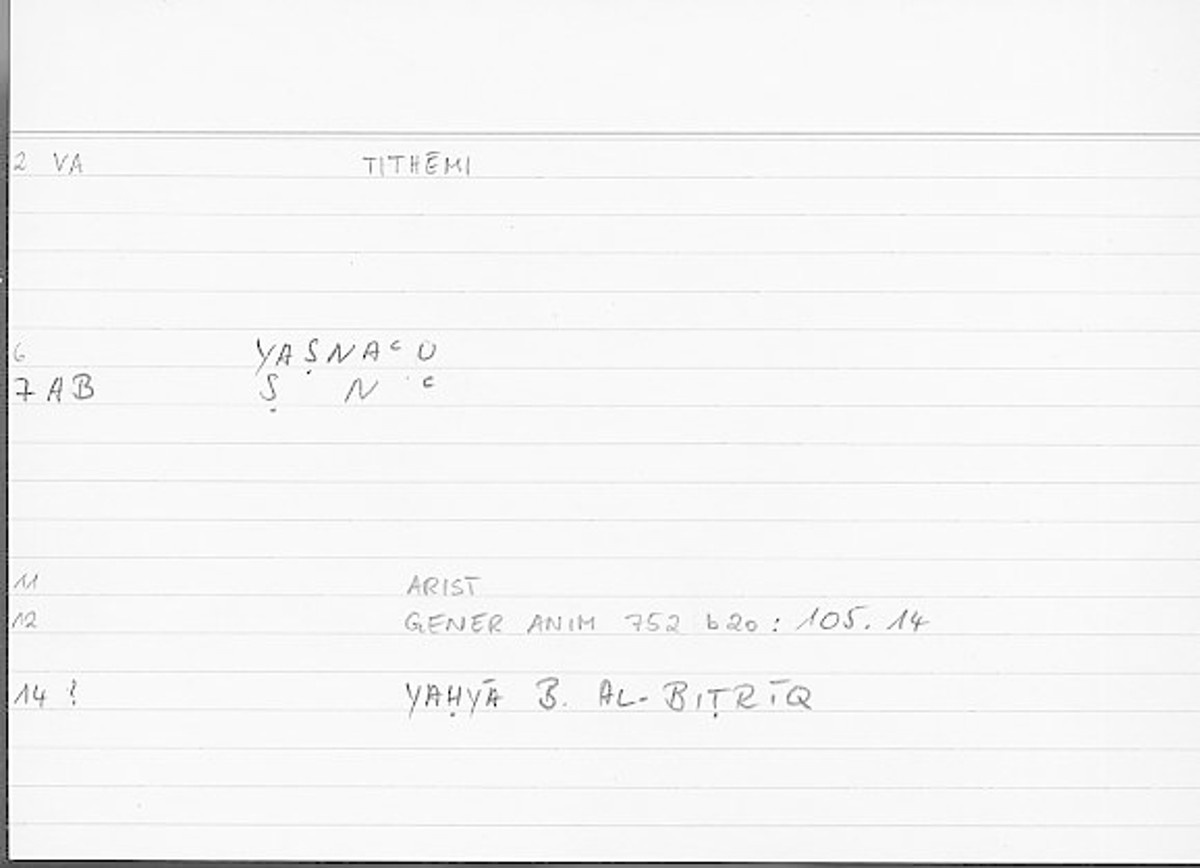 2 VA TITHĒMI
6 YAṢNAʿU
7 AB Ṣ N ʿ
11 ARIST
12 GENER ANIM 752 b20: 105.14
14 ? YAḤYĀ B. AL-BIṬRĪQ